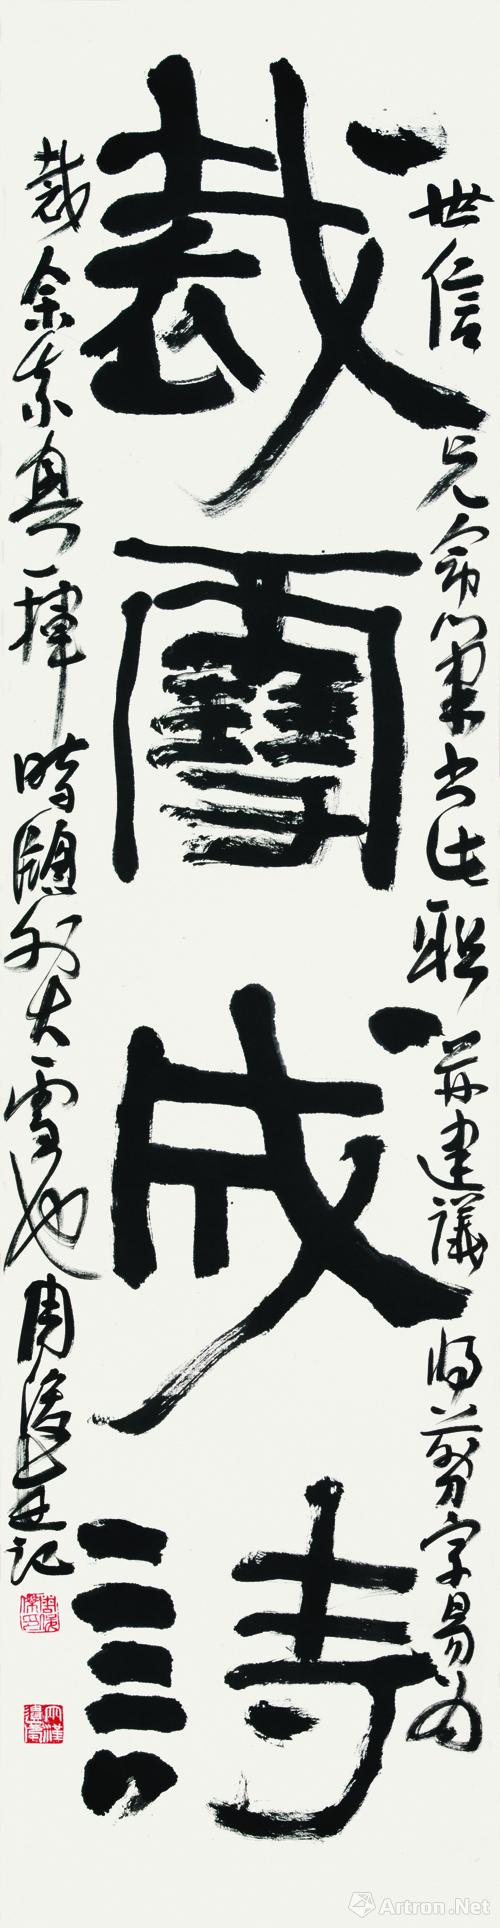 裁雪成詩
世信兄命筆書此聯并建議將剪字易為
裁余素奐一揮時窗外大雪也周俊杰記
Artron.Net